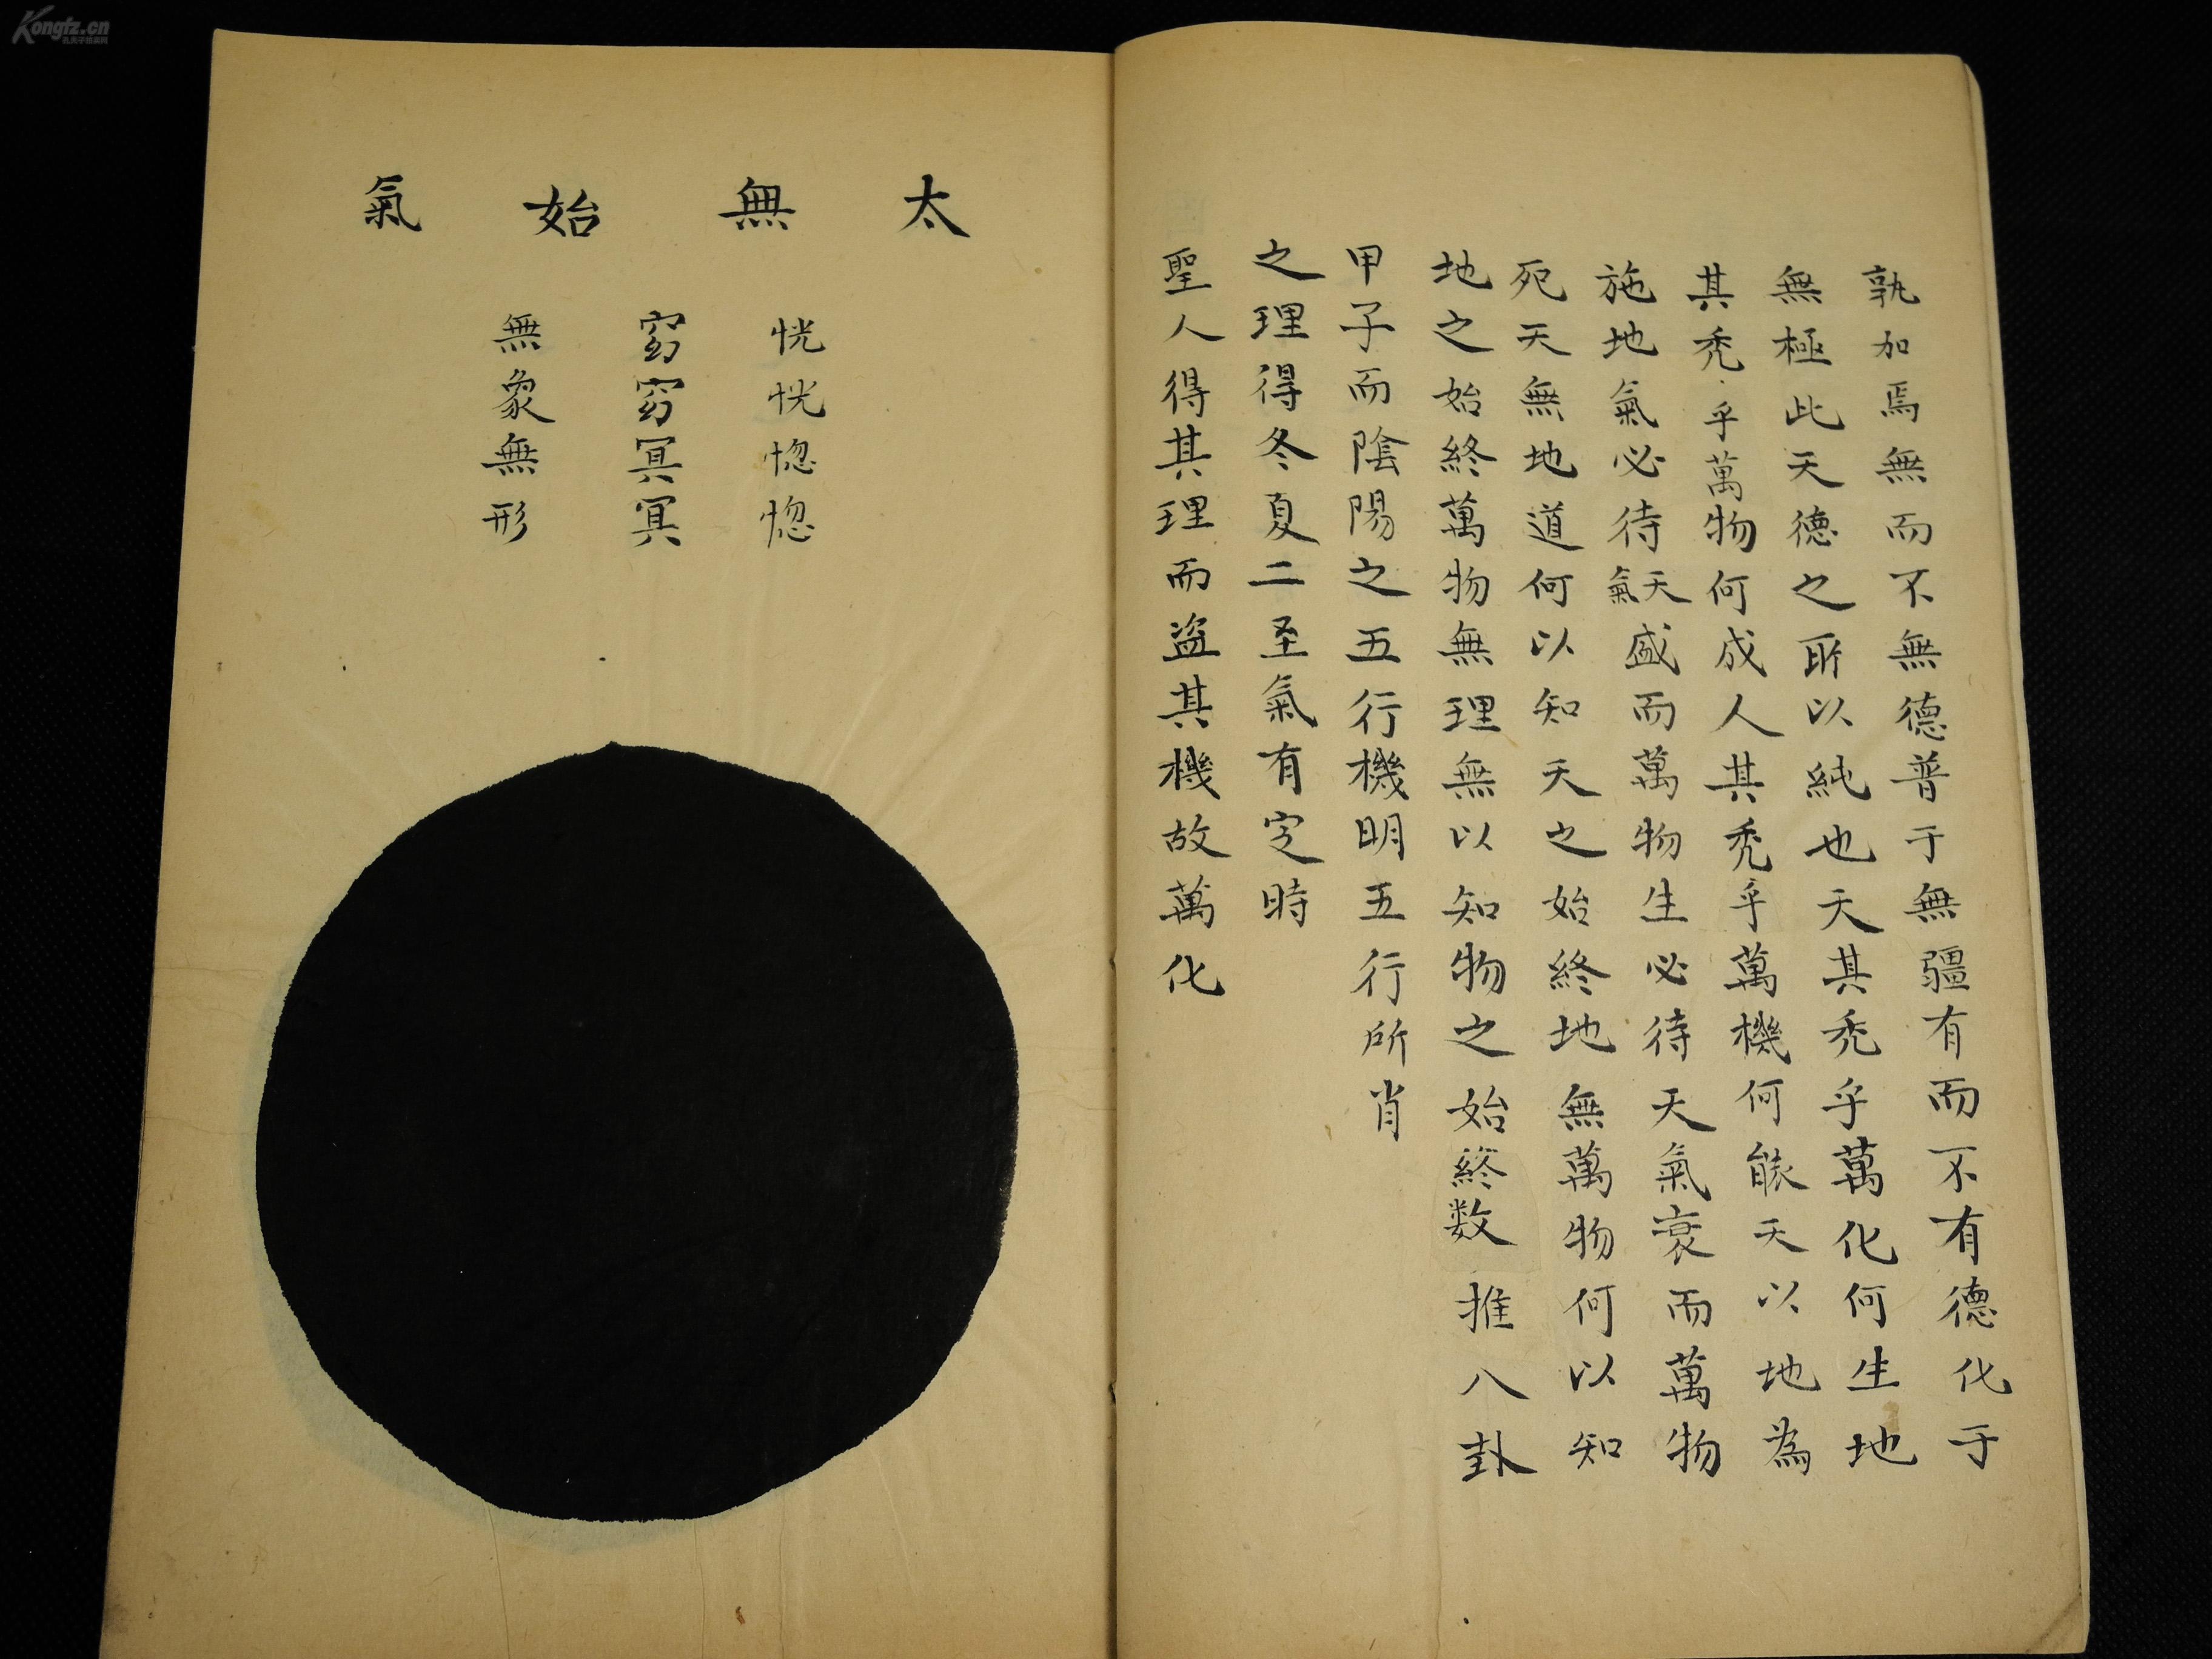 孰加焉無而不無德普于無疆有而不有德化于
無極此天德之所以純也天其秃乎萬化何生地
其秃乎萬物何成人其秃乎萬機何能天以地為
施地氣必待天氣盛而萬物生必待天氣衰而萬物
死天無地道何以知天之始終地無萬物何以知
地之始終萬物無理無以知物之始終数推八卦
甲子而陰陽之五行機明五行所肖
之理得冬夏二至氣有定時
聖人得其理而盗其機故萬化
太無始氣
恍恍惚惚
窈窈冥冥
無象無形
Kongfz.cn